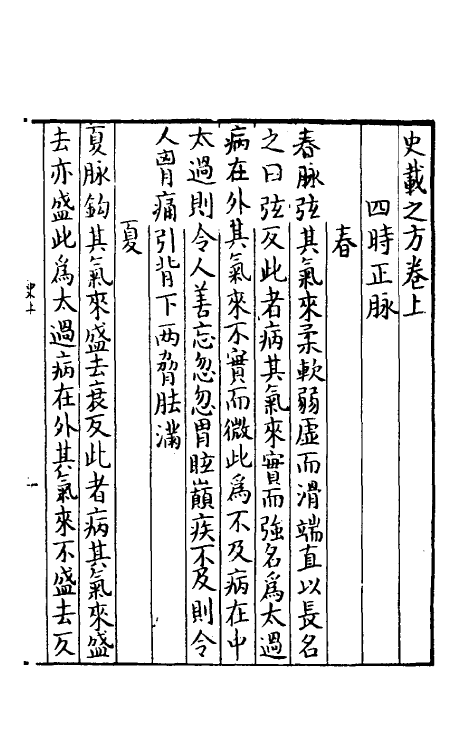 史載之方卷上
四時正脉
春
春脉弦其氣來柔軟弱虛而滑端直以長名
之曰弦反此者病其氣來實而強名爲太過
病在外其氣來不實而微此爲不及病在中
太過則令人善忘忽忽冒眩巔疾不及則令
人胷痛引背下两脅胠滿
夏
夏脉鈎其氣來盛去衰反此者病其氣來盛
去亦盛此爲太過病在外其氣來不盛去反
史上
一